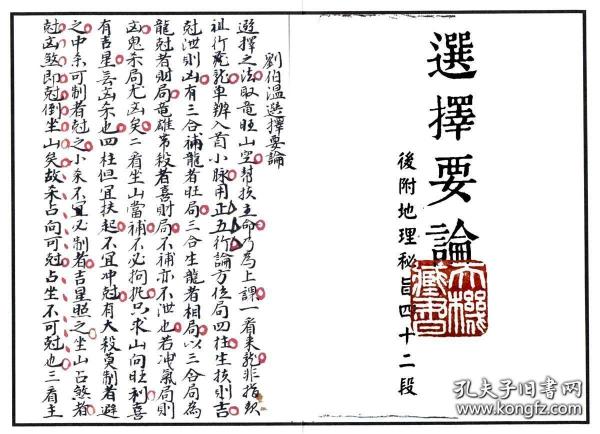 選擇要論
後附地理秘旨四十二段
天機藏書
劉伯温選擇要論
選擇之法取竜旺山空幇扶主命乃為上課一看来龍非指数
祖行龍車辦入首小脉用正五行論方位局四柱生扶則吉
尅泄則凶有三合補龍者旺局三合生龍者相局以三合局為
龍尅者財局竜雄帶殺者喜財局不補亦不泄也若洩氣局則
凶鬼杀局尤凶矣二看坐山當補不必拘扶只求山向旺利喜
有吉星無凶杀也四柱但宜扶起不宜冲尅有大殺莫制者避
之中杀可制者尅之小杀不宜必制者吉星照之坐山占煞者
尅凶煞即尅倒坐山矣故杀占向可尅占坐不可尅也三看主
孔夫子旧书网
www.kongfz.com